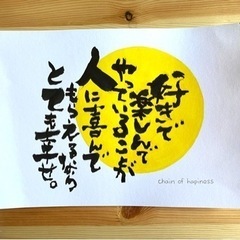 好きで
楽しんで
やっていることが
人に喜んで
もらえるなら
とても幸せ。
chain of hapiness